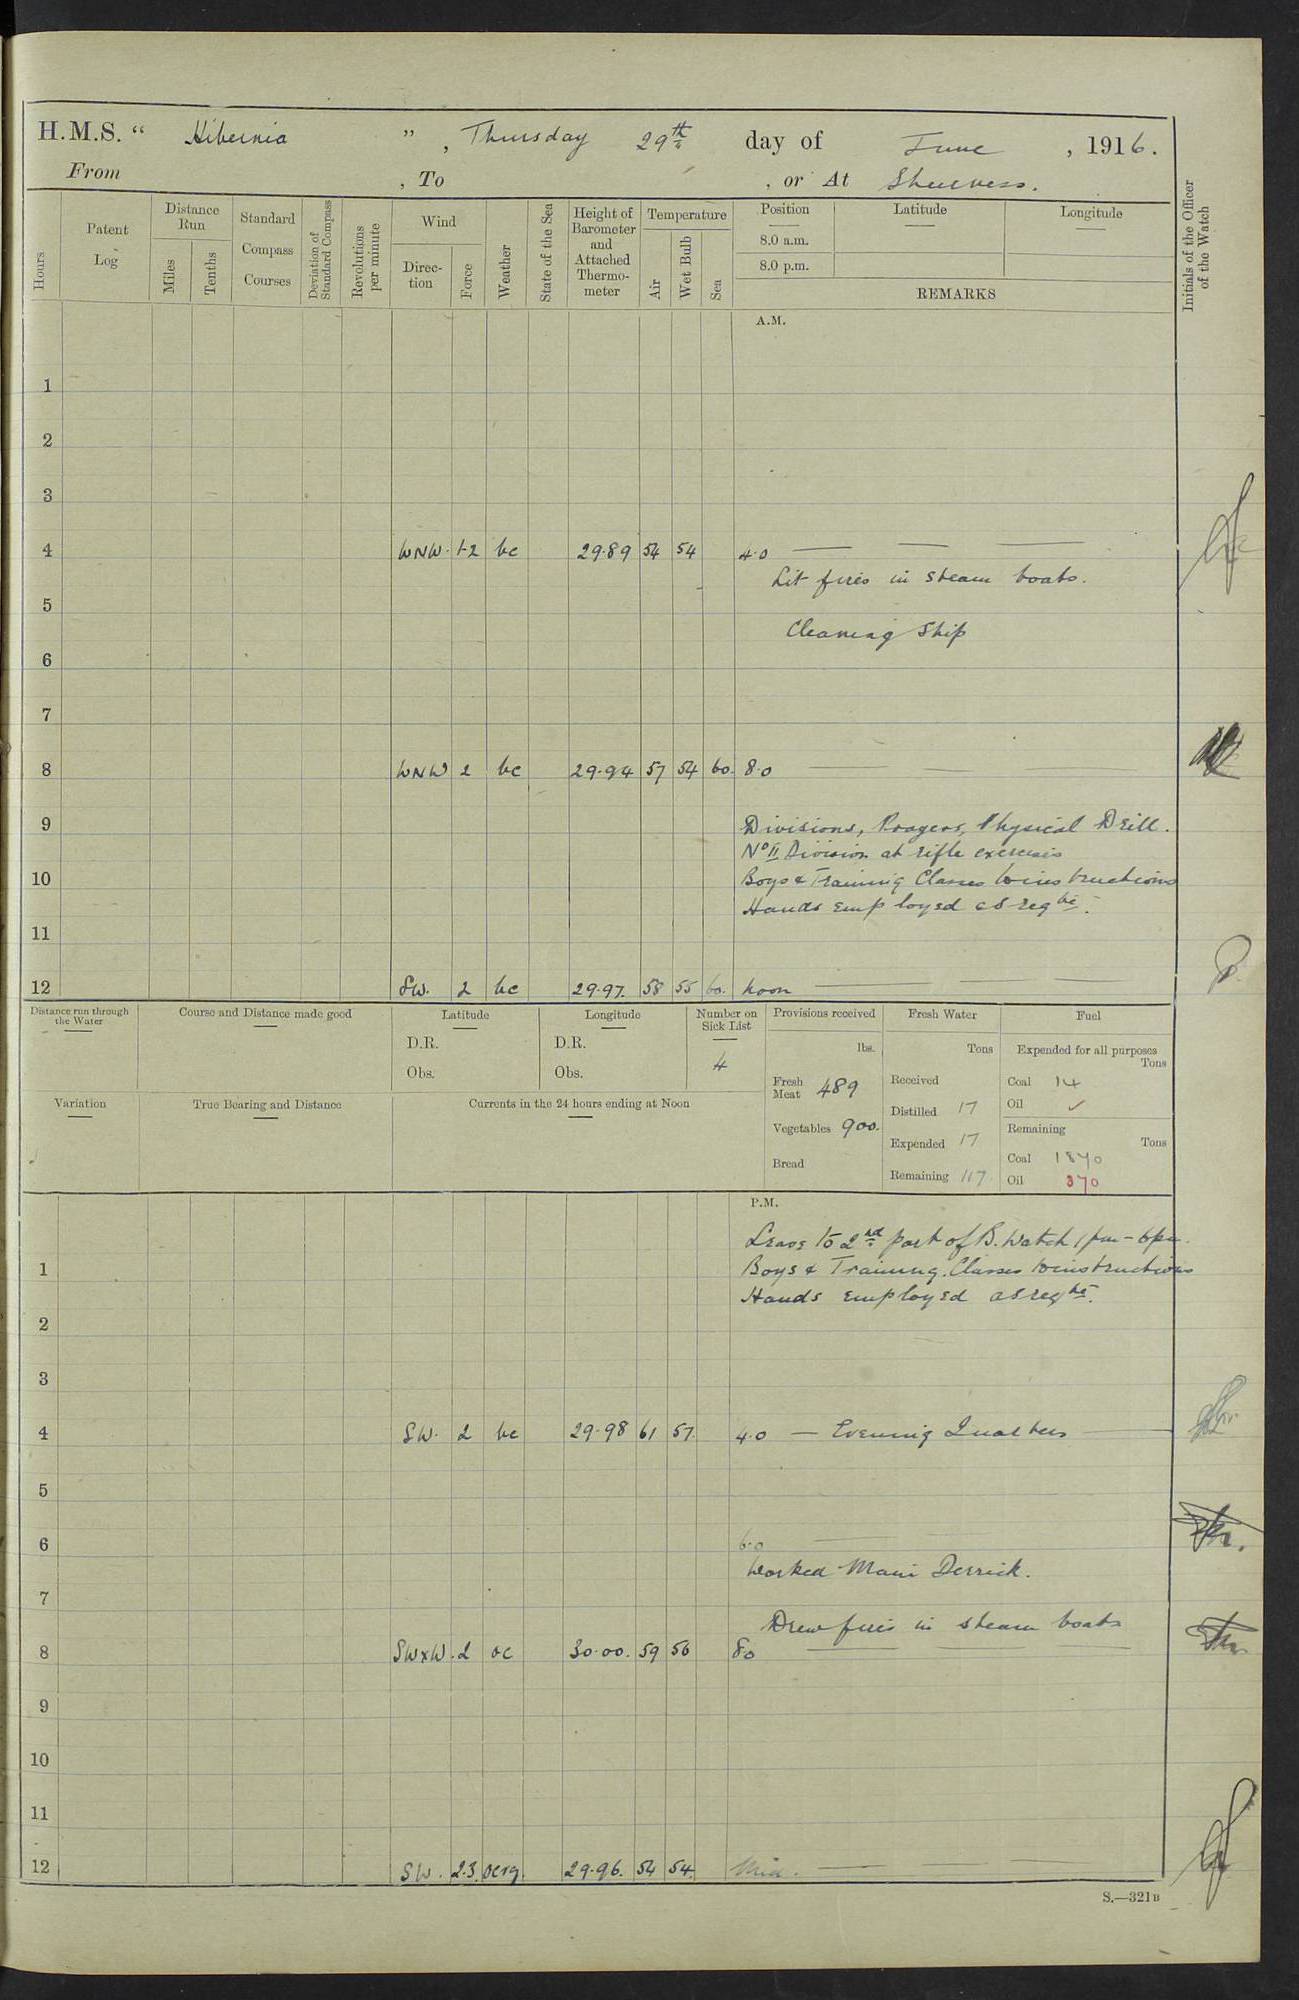 H.M.S. “ Hibernia ”, Thursday 29th day of June, 1916.
From , To , or At Sheerness.
Hours
Patent Log
Distance Run
Miles
Tenths
Standard Compass Courses
Deviation of Standard Compass
Revolutions per minute
Wind
Direction
Force
Weather
State of the Sea
Height of Barometer and Attached Thermometer
Temperature
Air
Wet Bulb
Sea
Position
Latitude
Longitude
8.0 a.m.
8.0 p.m.
REMARKS
Initials of the Officer of the Watch
A.M.
1
2
3
4 WNW. 1-2 bc 29.89 54 54 4.0
Lit fires in steam boats.
5
Cleaning Ship
6
7
8 WNW 2 bc 29.94 57 54 60. 8.0
9 Divisions, Prayers, Physical Drill.
No II Division at rifle exercises
10 Boys & Training Classes to instructions
Hands employed as reqte.
11
12 SW. 2 bc 29.97. 58 55 60. Noon
Distance run through the Water
Course and Distance made good
Latitude
D.R.
Obs.
Longitude
D.R.
Obs.
Number on Sick List
4
Provisions received
lbs.
Fresh Meat 489
Vegetables 900.
Bread
Fresh Water
Tons
Received
Distilled 17
Expended 17
Remaining 117.
Fuel
Expended for all purposes
Tons
Coal 14
Oil ✓
Remaining
Tons
Coal 1870
Oil 370
Variation
True Bearing and Distance
Currents in the 24 hours ending at Noon
P.M.
Leave to 2nd part of B. Watch 1pm - 6pm.
1 Boys & Training Classes to instructions
Hands employed as reqte.
2
3
4 SW. 2 bc 29.98 61 57. 4.0 — Evening Quarters
5
6 6.0
Worked Main Derrick.
7
Drew fires in steam boats
8 SWxW. 2 oc 30.00. 59 56 8.0
9
10
11
12 SW. 2.3. ocrq. 29.96. 54 54. Mid.
S.—321B